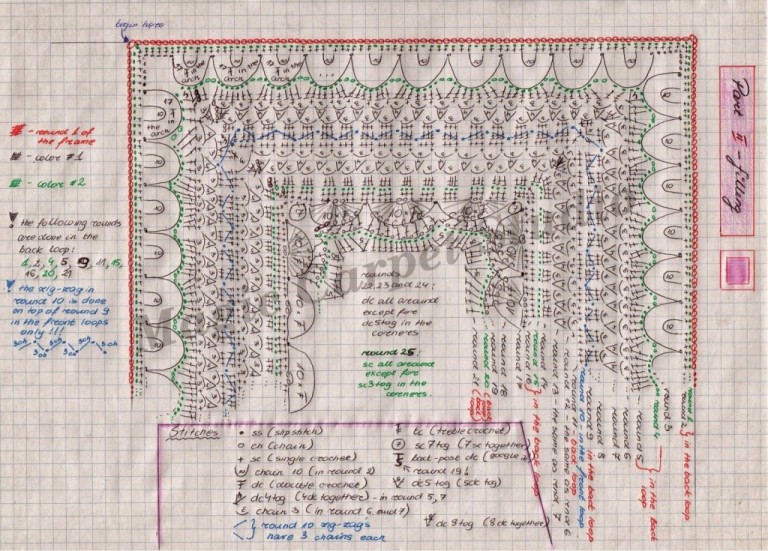 begin here
Part II - filling
- round 1 of
the frame
- color #1
- color #2
the following rounds
are done in the
back loop:
1, 2, 4, 5, 9, 11, 15,
16, 20, 21
the zig-zag in
round 10 is done
on top of round 9
in the front loops
only !!!
3ch 3ch 3ch
3ch 3ch
17
in
the arch
in the
arch
Magic Carpet Studio
rounds
22, 23 and 24:
dc all around
except for
dc5tog in the
corners
round 25
sc all around
except for
sc3tog in the
corners.
round 1
round 2
in the back loop
round 3
round 4
in the back
loop
round 5
round 6
round 7
round 8
round 9 in the back loop
round 10 in the front loop
round 11 back loop
round 12 the same as row 6
round 13 the same as row 7
round 14
round 15
round 16
in the back loop
round 17
round 18
round 19
round 20
round 21
Stitches
ss (slipstitch)
ch (chain)
sc (single crochet)
chain 10 (in round 2)
dc (double crochet)
dc4tog (4dc together) - in round 5, 7
chain 3 (in round 6 and 7)
round 10 zig-zags
have 3 chains each
tc (treble crochet)
sc7tog (7sc together)
back-post dc (google it)
round 19
dc5tog (5dc tog)
dc8tog (8dc together)